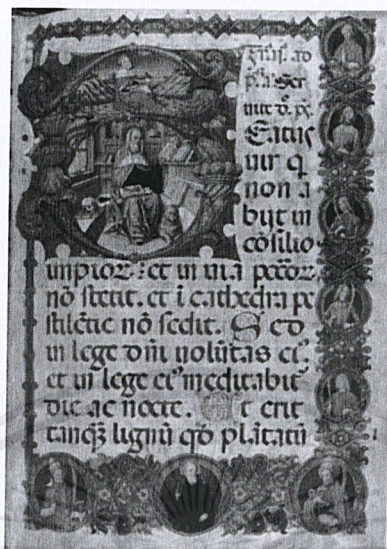 Eatus
uir q
non a
bijt in
cōsilio
impioꝝ: et in uia pccōꝝ
nō stetit. et ī cathedra pe
stilētie nō sedit. Sed
in lege dn̄i uolūtas ei᾽.
et in lege ei᾽ meditabit᾽
die ac nocte. Et erit
tanqꝫ lignū qđ plātatū